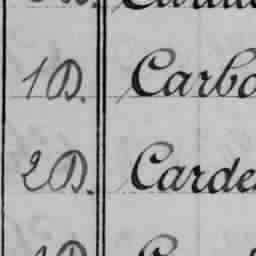 1 D. Carbo
2 D. Carde